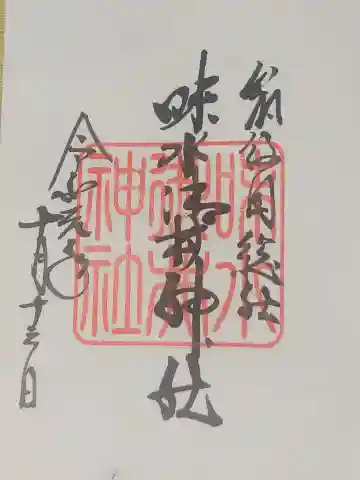 筑後国総社
味水御井神社
令和元年
十月十三日
味水
御井
神社